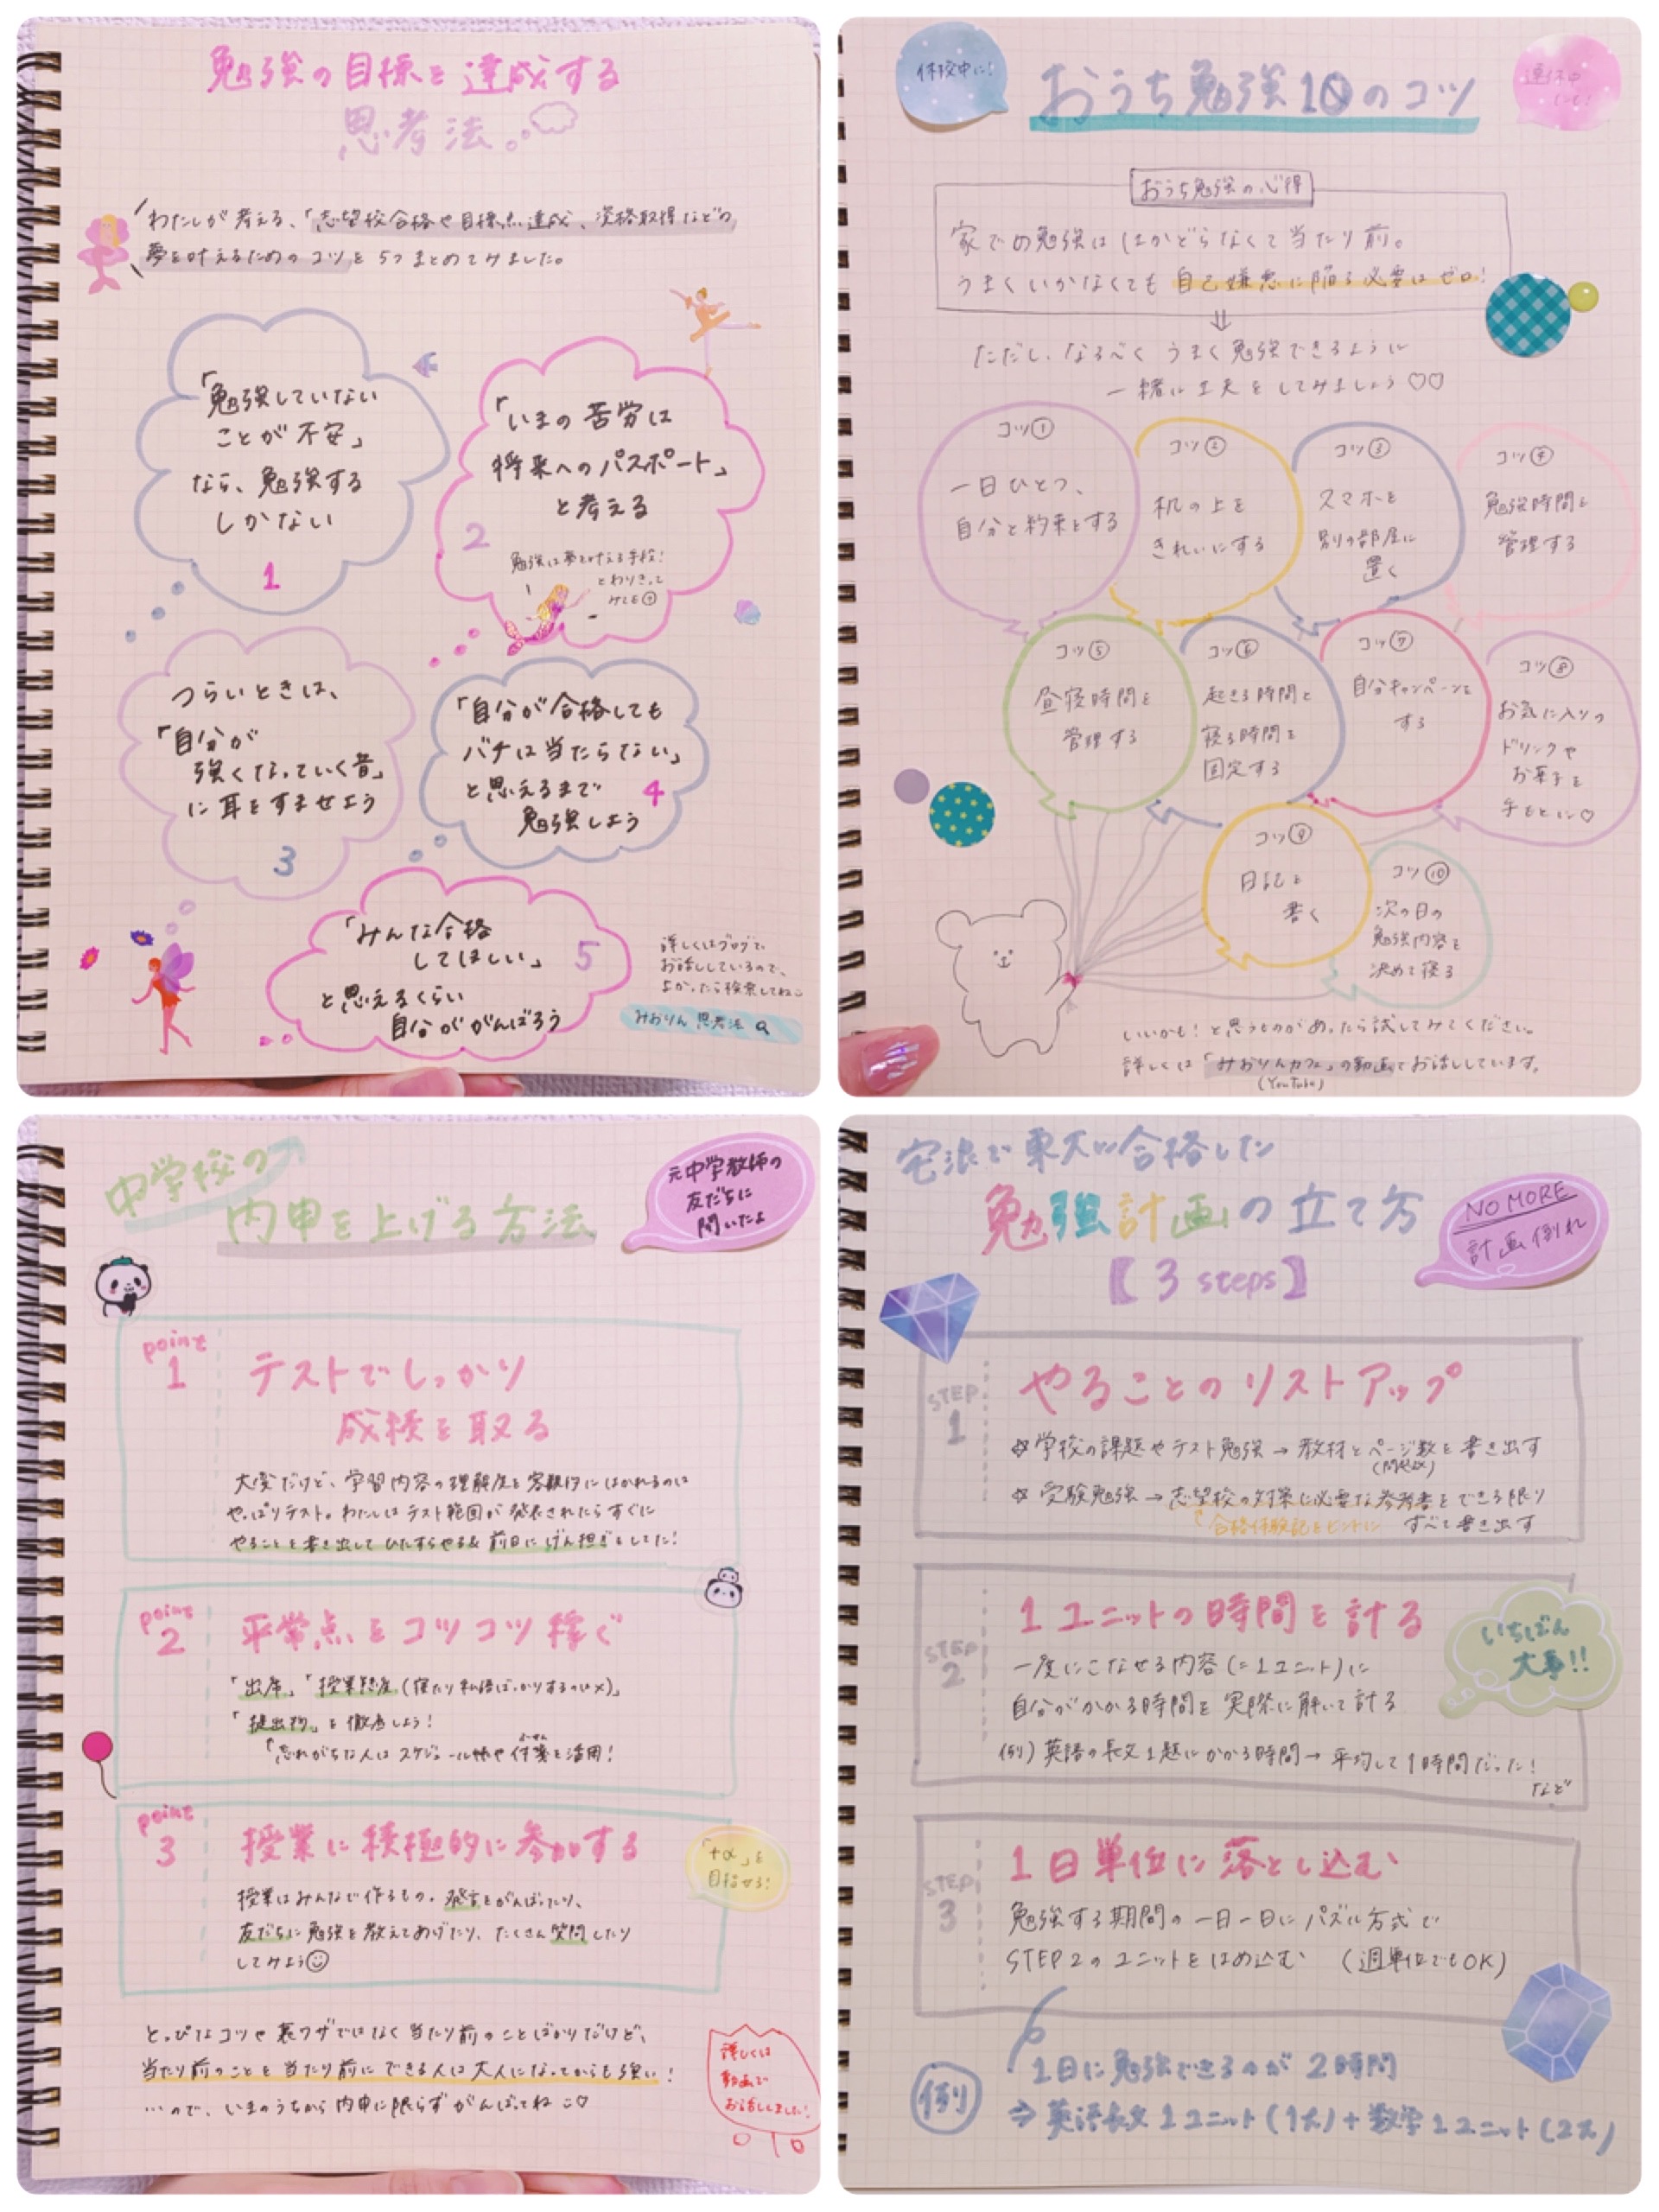 勉強の目標を達成する
思考法。
わたしが考える、「志望校合格や目標点達成、資格取得などの
夢を叶えるためのコツ」を5つまとめてみました。
「勉強していない
ことが不安」
なら、勉強する
しかない
1
「いまの苦労は
将来へのパスポート」
と考える
2
勉強は夢を叶える手段!
とわりきって
みても
つらいときは、
「自分が
強くなっていく音」
に耳をすませよう
3
「自分が合格しても
バチは当たらない」
と思えるまで
勉強しよう
4
「みんな合格
してほしい」
と思えるくらい
自分ががんばろう
5
詳しくはブログで
お話ししているので、
よかったら検索してね
みおりん 思考法
休校中に!
おうち勉強10のコツ
連休中
にも!
おうち勉強の心得
家での勉強ははかどらなくて当たり前。
うまくいかなくても自己嫌悪に陥る必要はゼロ!
⇓
ただし、なるべくうまく勉強できるように
一緒に工夫をしてみましょう♡♡
コツ①
一日ひとつ、
自分と約束をする
コツ②
机の上を
きれいにする
コツ③
スマホを
別の部屋に
置く
コツ④
勉強時間を
管理する
コツ⑤
昼寝時間を
管理する
コツ⑥
起きる時間と
寝る時間を
固定する
コツ⑦
自分キャンペーンを
する
コツ⑧
お気に入りの
ドリンクや
お菓子を
手もとに♡
コツ⑨
日記を
書く
コツ⑩
次の日の
勉強内容を
決めて寝る
いいかも!と思うものがあったら試してみてください。
詳しくは「みおりんカフェ」の動画でお話ししています。
(YouTube)
中学校の
内申を上げる方法
元中学教師の
友だちに
聞いたよ
point
1
テストでしっかり
成績を取る
大変だけど、学習内容の理解度を客観的にはかれるのは
やっぱりテスト。わたしはテスト範囲が発表されたらすぐに
やることを書き出してひたすらやる& 前日にげん担ぎをしてた!
point
2
平常点をコツコツ稼ぐ
「出席」「授業態度(寝たり私語ばっかりするのは×)」
「提出物」を徹底しよう!
忘れがちな人はスケジュール帳や付箋を活用!
ふせん
point
3
授業に積極的に参加する
「+α」を
目指せる!
授業はみんなで作るもの。発言をがんばったり、
友だちに勉強を教えてあげたり、たくさん質問したり
してみよう
とっぴなコツや裏ワザではなく当たり前のことばかりだけど、
当たり前のことを当たり前にできる人は大人になってからも強い!
…ので、いまのうちから内申に限らずがんばってね
詳しくは
動画で
お話ししました!
宅浪で東大に合格した
勉強計画の立て方
【3 steps】
NO MORE
計画倒れ
STEP
1
やることのリストアップ
☆学校の課題やテスト勉強→教材とページ数を書き出す
(問題数)
☆受験勉強→志望校の対策に必要な参考書をできる限り
合格体験記をヒントに
すべて書き出す
STEP
2
1ユニットの時間を計る
いちばん
大事!!
一度にこなせる内容(=1ユニット)に
自分がかかる時間を実際に解いて計る
例)英語の長文1題にかかる時間→平均して1時間だった!
など
STEP
3
1日単位に落とし込む
勉強する期間の一日一日にパズル方式で
STEP2のユニットをはめ込む (週単位でもOK)
例
1日に勉強できるのが2時間
⇒英語長文1ユニット(1h)+数学1ユニット(2h)